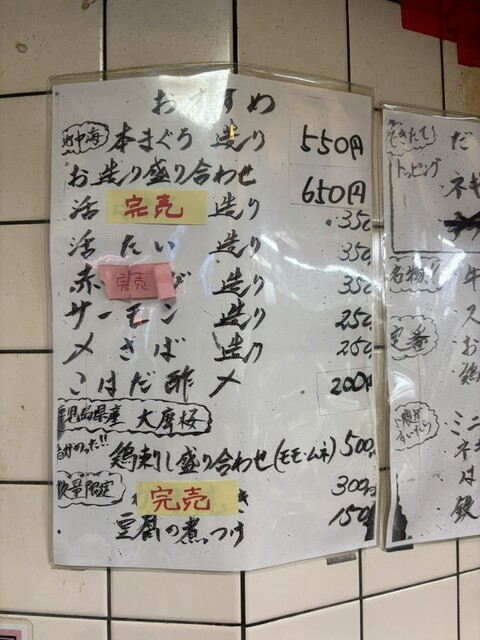 おすすめ
地中海 本まぐろ 造り 550円
お造り盛り合わせ 650円
活 完売 造り 350
活 たい 造り 350
赤 完売 造り 350
サーモン 造り 250
〆さば 造り 250
こはだ酢〆 200円
鹿児島県産 大摩桜
鶏刺し盛り合わせ(モモ・ムネ) 500
数量限定 完売 300
豆腐の煮つけ 150
できたて! だ
トッピング
ネギ
名物! 牛
ス
定番 お
鶏
ミニ
ネギ
は